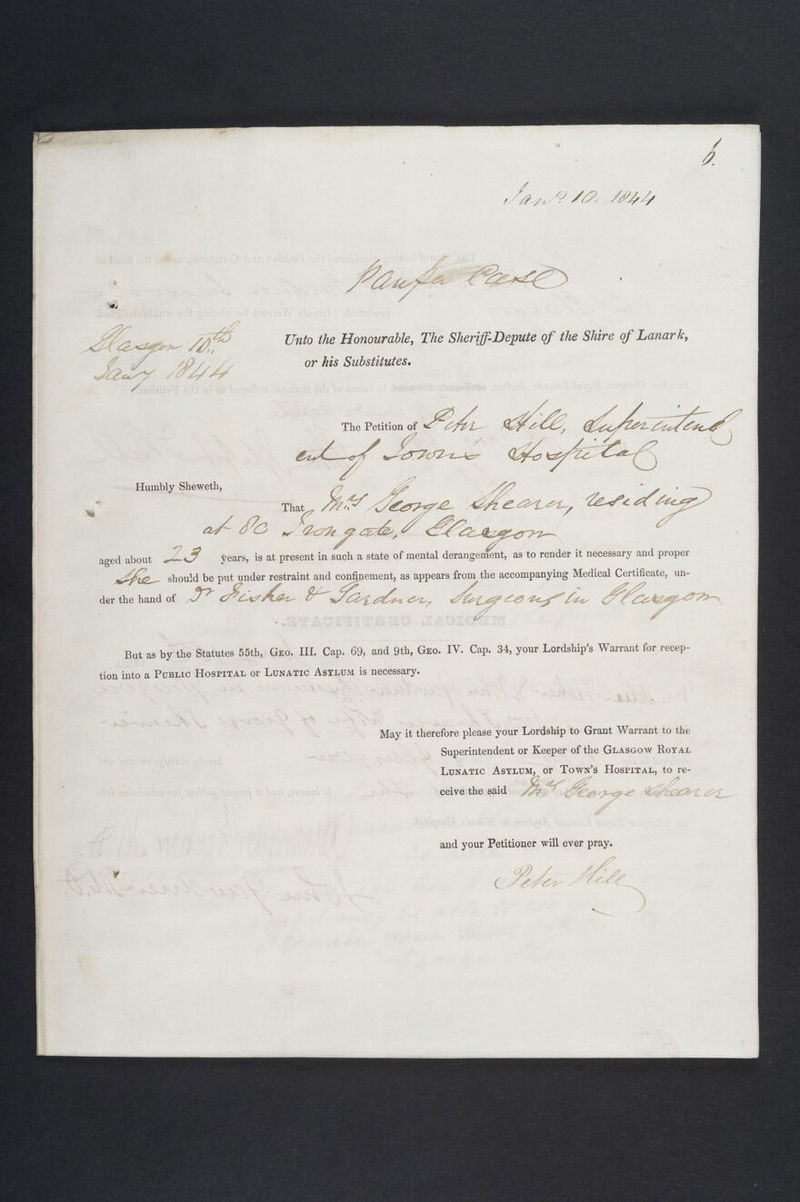 6.
Jany. 10. 1844
Pauper Case
Glasgow 10th
Jany 1844
Unto the Honourable, The Sheriff-Depute of the Shire of Lanark,
or his Substitutes.
The Petition of Peter Hill, Superintend
ent of Towns Hospital
Humbly Sheweth,
That Mrs George Shearer, residing
at 80 Trongate, Glasgow
aged about 23 years, is at present in such a state of mental derangement, as to render it necessary and proper
She should be put under restraint and confinement, as appears from the accompanying Medical Certificate, un-
der the hand of Dr Fisher & Gardner, Surgeons in Glasgow
But as by the Statutes 55th, GEO. III. Cap. 69, and 9th, GEO. IV. Cap. 34, your Lordship's Warrant for recep-
tion into a PUBLIC HOSPITAL or LUNATIC ASYLUM is necessary.
May it therefore please your Lordship to Grant Warrant to the
Superintendent or Keeper of the GLASGOW ROYAL
LUNATIC ASYLUM, or TOWN'S HOSPITAL, to re-
ceive the said Mrs George Shearer
and your Petitioner will ever pray.
Peter Hill